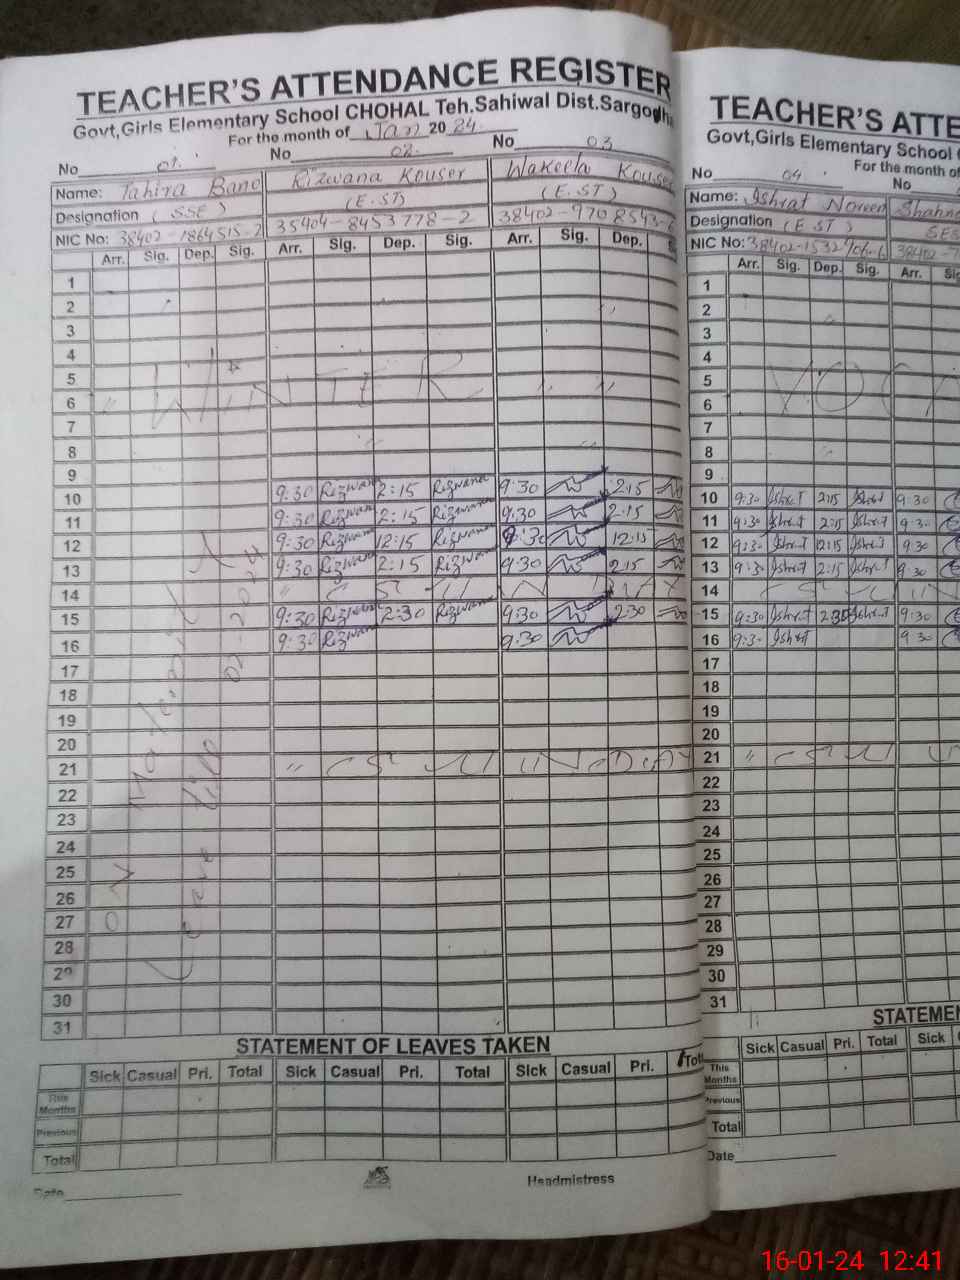 TEACHER'S ATTENDANCE REGISTER
Govt,Girls Elementary School CHOHAL Teh.Sahiwal Dist.Sargodha
For the month of Jan 2024.
No 01. No 02. No 03
Name: Tahira Bano Rizwana Kouser Wakeela Kouser
Designation (SSE) (E.ST) (E.ST)
NIC No: 38402-1864515-2 35404-8453778-2 38402-9708543-6
Arr. Sig. Dep. Sig. Arr. Sig. Dep. Sig. Arr. Sig. Dep. S
1
2
3
4
5
6 " WINTER " "
7
8
9
10 9:30 Rizwana 2:15 Rizwana 9:30 2:15
11 9:30 Rizwana 2:15 Rizwana 9:30 2:15
12 9:30 Rizwana 12:15 Rizwana 9:30 12:15
13 9:30 Rizwana 2:15 Rizwana 9:30 2:15
14 " SUNDAY
15 9:30 Rizwana 2:30 Rizwana 9:30 2:30
16 9:30 Rizwana 9:30
17
18
19
20
21 " SUNDAY
22
23
24
25
26
27
28
29
30
31
ON Maternity
Leave till 02-2024
STATEMENT OF LEAVES TAKEN
Sick Casual Pri. Total Sick Casual Pri. Total Sick Casual Pri. Tot
This Months
Previous
Total
Date
Headmistress
TEACHER'S ATTE
Govt,Girls Elementary School
For the month of
No 04 No
Name: Ishrat Noreen Shahna
Designation (E.ST) SES
NIC No: 38402-1532906-6 38402-7
Arr. Sig. Dep. Sig. Arr. Sig
1
2
3
4
5 VOCA
6
7
8
9
10 9:30 Ishrat 2:15 Ishrat 9:30
11 9:30 Ishrat 2:15 Ishrat 9:30
12 9:30 Ishrat 12:15 Ishrat 9:30
13 9:30 Ishrat 2:15 Ishrat 9:30
14 SUN
15 9:30 Ishrat 2:30 Ishrat 9:30
16 9:30 Ishrat 9:30
17
18
19
20
21 " SU
22
23
24
25
26
27
28
29
30
31
STATEMEN
Sick Casual Pri. Total Sick
This Months
Previous
Total
Date
16-01-24 12:41